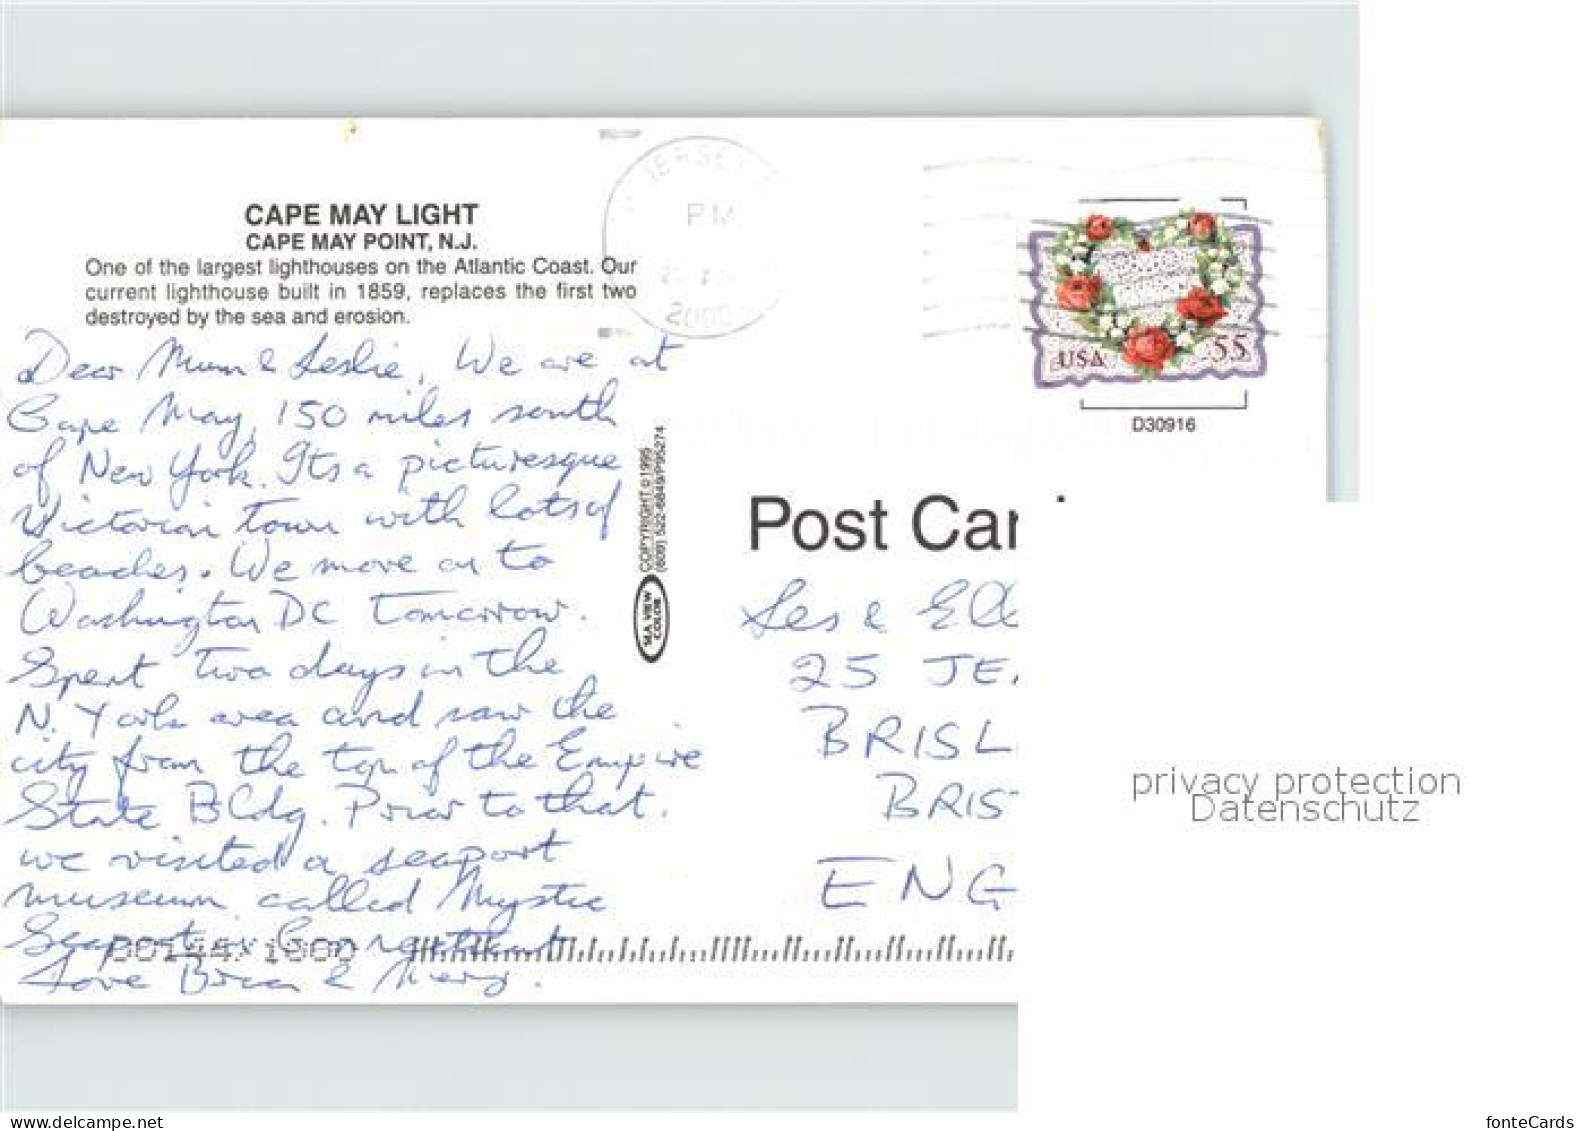 CAPE MAY LIGHT
CAPE MAY POINT, N.J.
One of the largest lighthouses on the Atlantic Coast. Our
current lighthouse built in 1859, replaces the first two
destroyed by the sea and erosion.
Dear Mum & Leslie, We are at
Cape May, 150 miles south
of New York. Its a picturesque
Victorian town with lots of
beaches. We move on to
Washington DC tomorrow.
Spent two days in the
N. York area and saw the
city from the top of the Empire
State Bldg. Prior to that
we visited a seaport
museum called Mystic
Seaport, Connecticut
Love Brian & Mery.
00144x1000
COPYRIGHT 01995
(609) 522-6849/P95274
SEA VIEW
COLOR
JERSEY
PM
2000
USA 55
D30916
Post Car
Les & Ell
25 JE
BRISL
BRIS
ENG
privacy protection
Datenschutz
www.delcampe.net
fonteCards